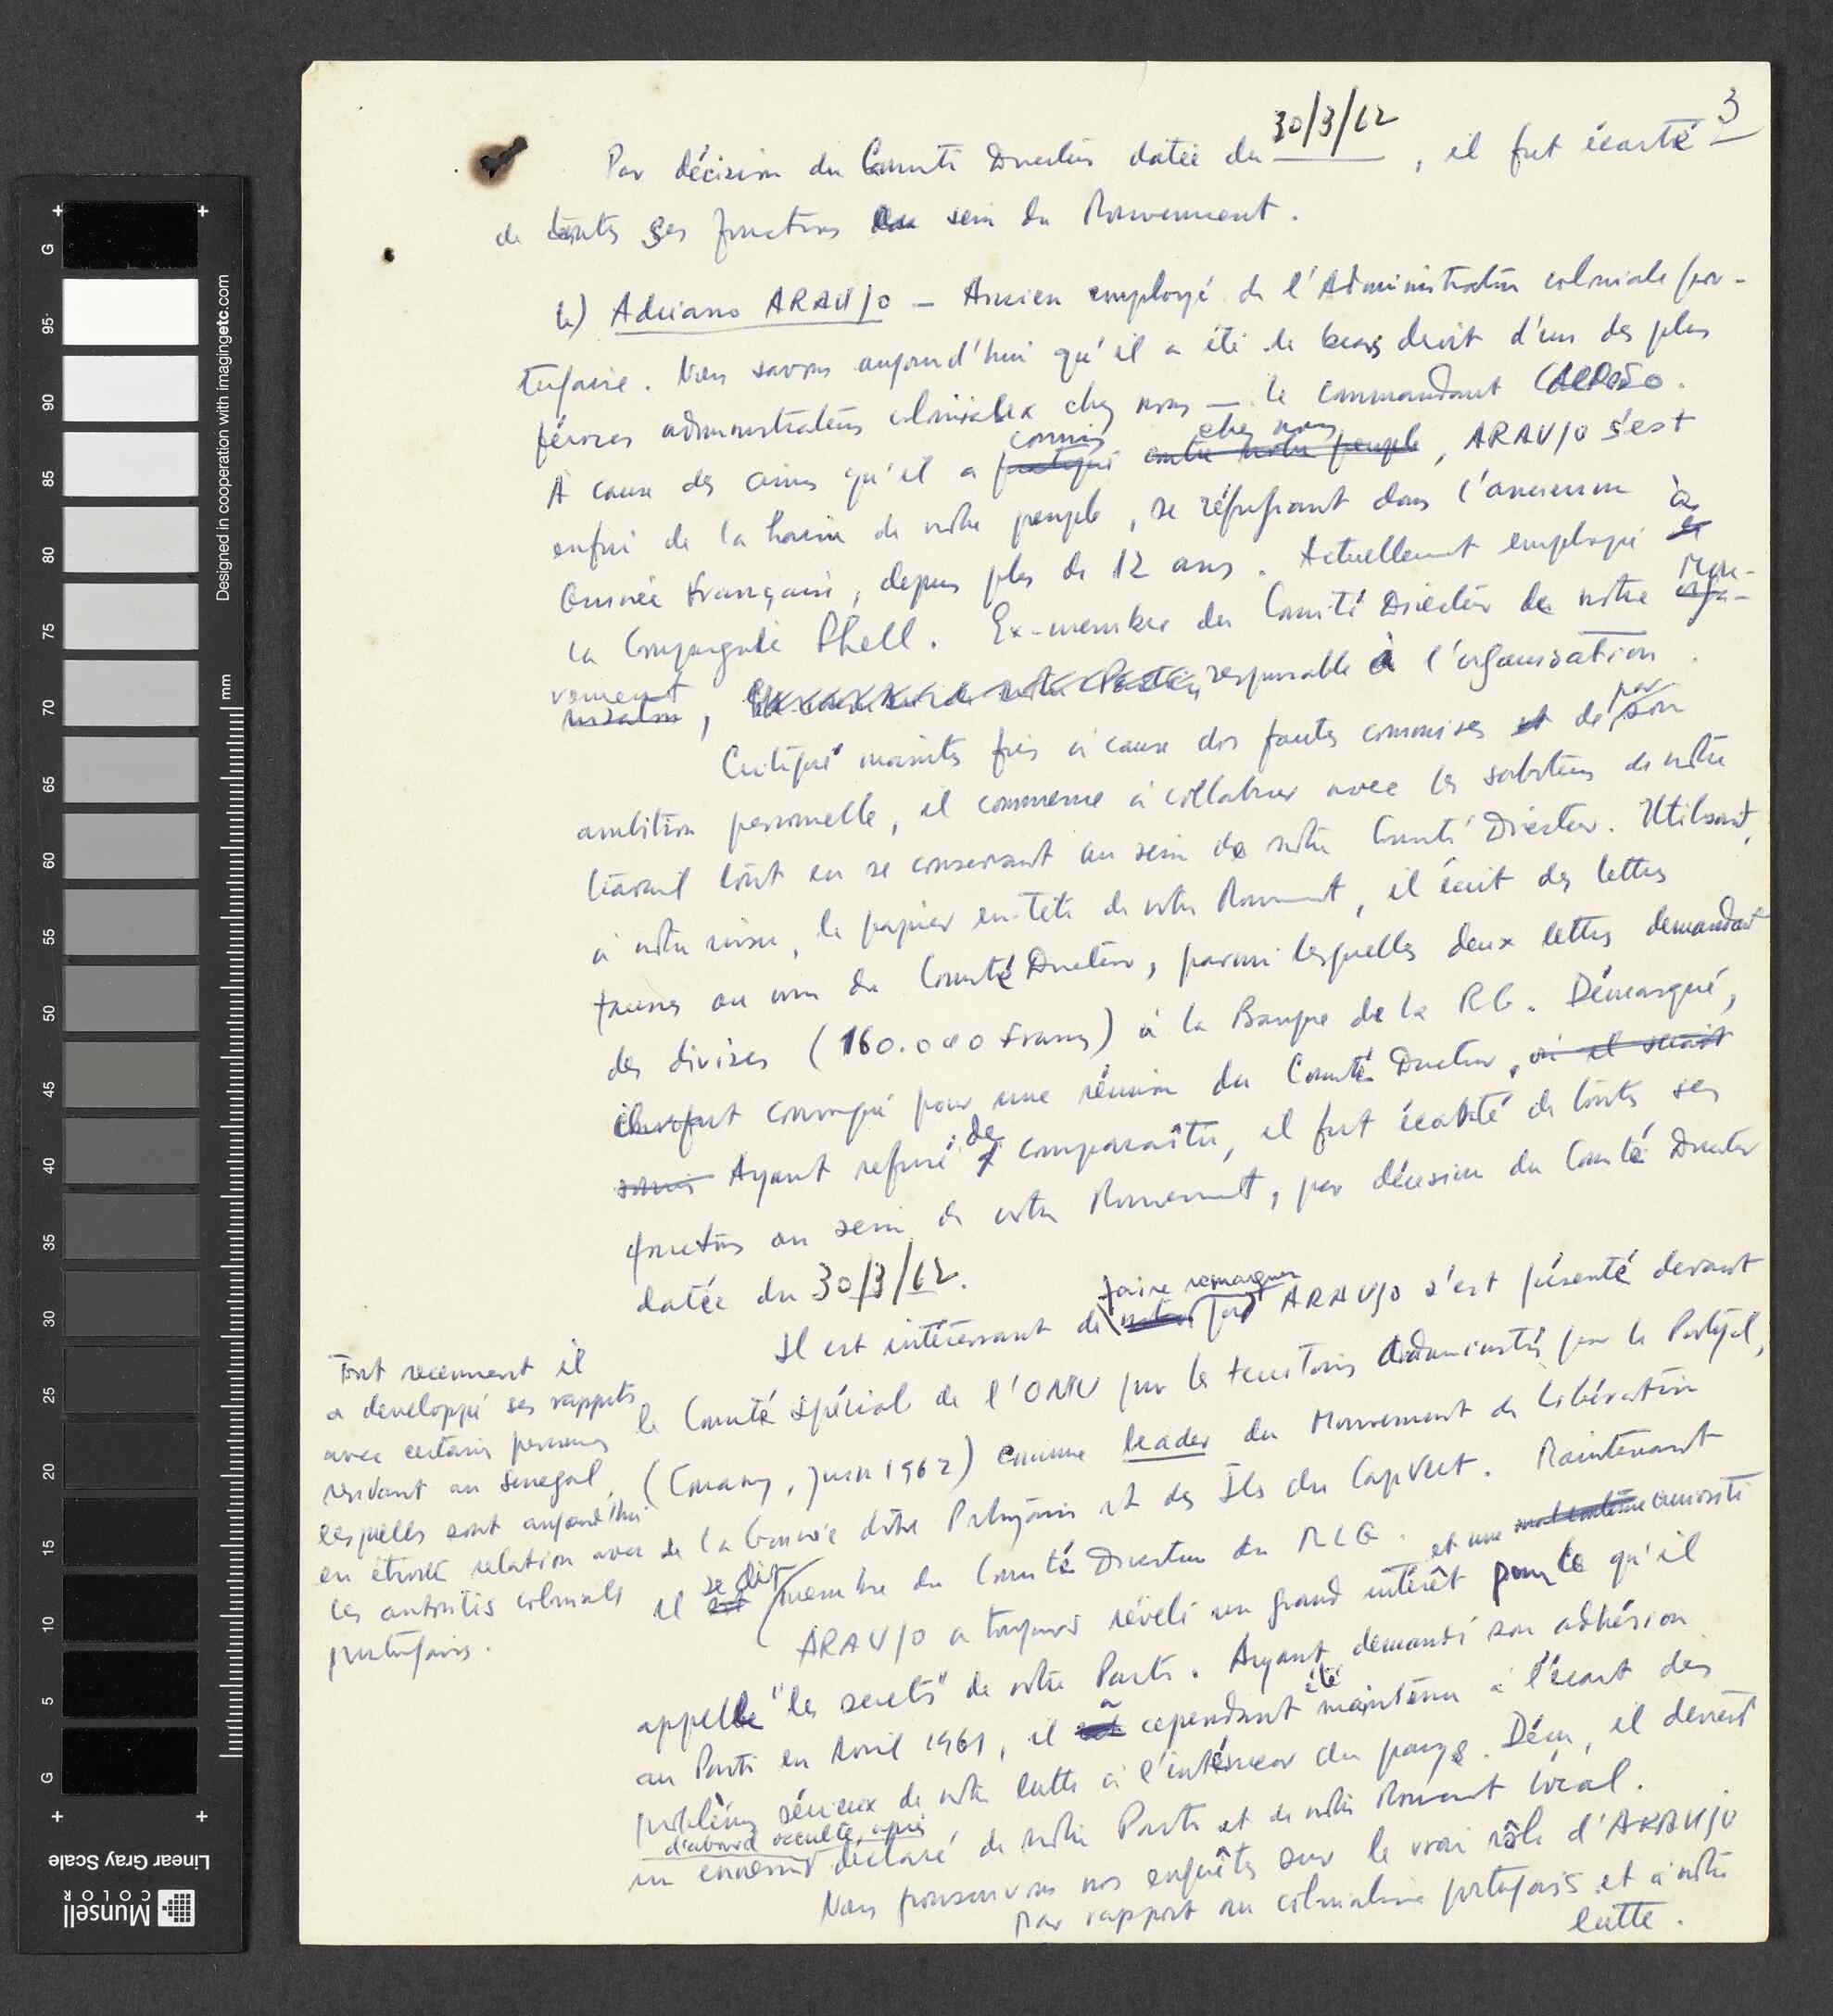 3
Par décision du Comité Directeur datée du 30/3/62, il fut écarté
de toutes ses fonctions au sein du Mouvement.
b) Adriano ARAUJO — Ancien employé de l'Administration coloniale por-
tugaise. Nous savons aujourd'hui qu'il a été le bras droit d'un des plus
féroces administrateurs coloniaux chez nous — le commandant
À cause des crimes qu'il a pratiqué commis contre notre peuple chez nous, ARAUJO s'est
enfui de la haine de notre peuple, se réfugiant dans l'ancienne
Guinée Française, depuis plus de 12 ans. Actuellement employé de à
la Compagnie Shell. Ex-membre du Comité Directeur de notre orga- Mou-
nisation vement, responsable à l'organisation.
Critiqué maintes fois à cause des fautes commises et de par son
ambition personnelle, il commence à collaborer avec les saboteurs de notre
travail tout en se conservant au sein de notre Comité Directeur. Utilisant,
à notre insu, le papier en-tête de notre Mouvement, il écrit des lettres
fausses au nom du Comité Directeur, parmi lesquelles deux lettres demandant
des divises (160.000 francs) à la Banque de la RG. Démasqué,
il fut convoqué pour une réunion du Comité Directeur, où il serait
soumis Ayant refusé de comparaître, il fut écarté de toutes ses
fonctions au sein de notre Mouvement, par décision du Comité Directeur
datée du 30/3/62.
Il est intéressant de noter faire remarquer que ARAUJO s'est présenté devant
le Comité spécial de l'ONU pour les territoires administrés par le Portugal,
(Conakry, juin 1962) comme leader du Mouvement de Libération
de la Guinée dite Portugaise et des Iles du Cap Vert. Maintenant
il est se dit membre du Comité Directeur du MLG.
Tout recemment il
a developpé ses rapports
avec certaines personnes
residant au Senegal,
lesquelles sont aujourd'hui
en étroite relation avec
les autorités coloniales
portugaises.
ARAUJO a toujours révélé un grand intérêt et une curiosité pour ce qu'il
appelle "les secrets" de notre Parti. Ayant demandé son adhésion
au Parti en Avril 1961, il a cependant été maintenu à l'écart des
problèmes sérieux de notre lutte à l'intérieur du pays. Déçu, il devient
d'abord occulte, après
un ennemi déclaré de notre Parti et de notre Mouvement local.
Nous poursuivons nos enquêtes sur le vrai rôle d'ARAUJO
par rapport au colonialisme portugais et à notre
lutte.
G
95
90
85
80
75
70
65
60
55
50
45
40
35
30
25
20
15
10
5
G
mm
Designed in cooperation with imagingetc.com
Linear Gray Scale
Munsell
COLOR